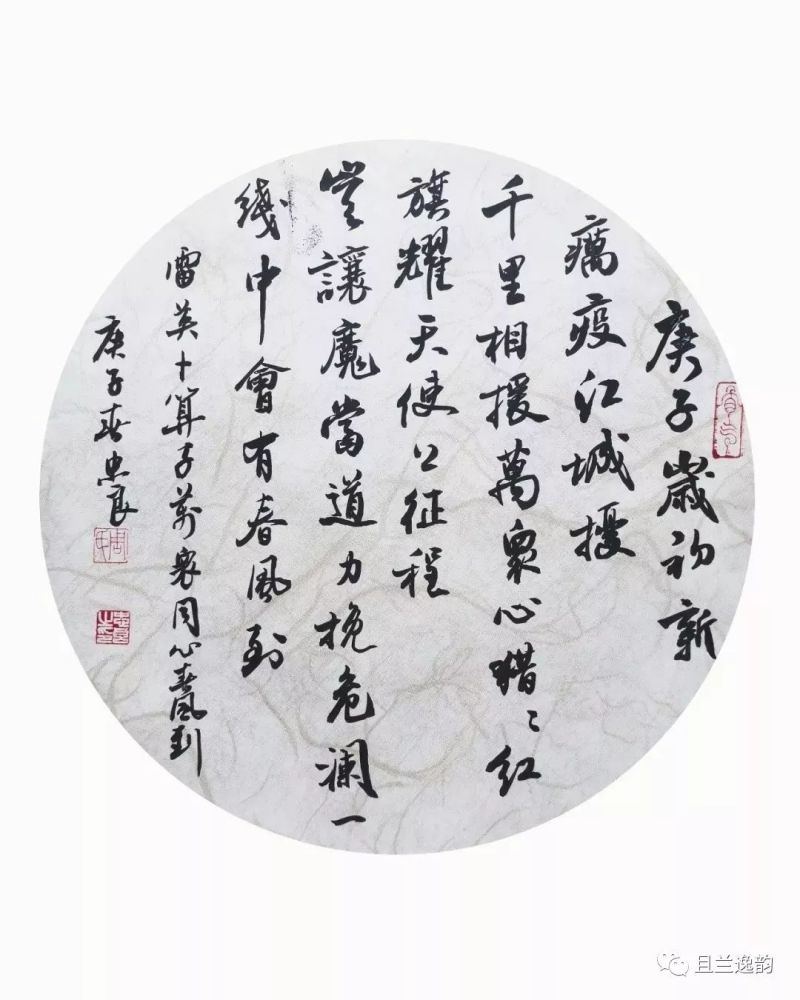 庚子歲初新
癘疫江城擾
千里相援萬衆心獵〻紅
旗耀天使上征程
豈讓魔當道力挽危瀾一
綫中會有春風到
雷英卜算子萬衆同心春風到
庚子春忠良
且兰逸韵